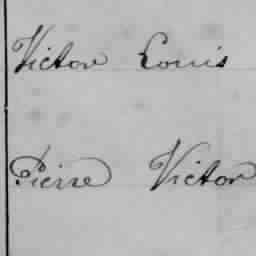 Victor Louis
Pierre Victor